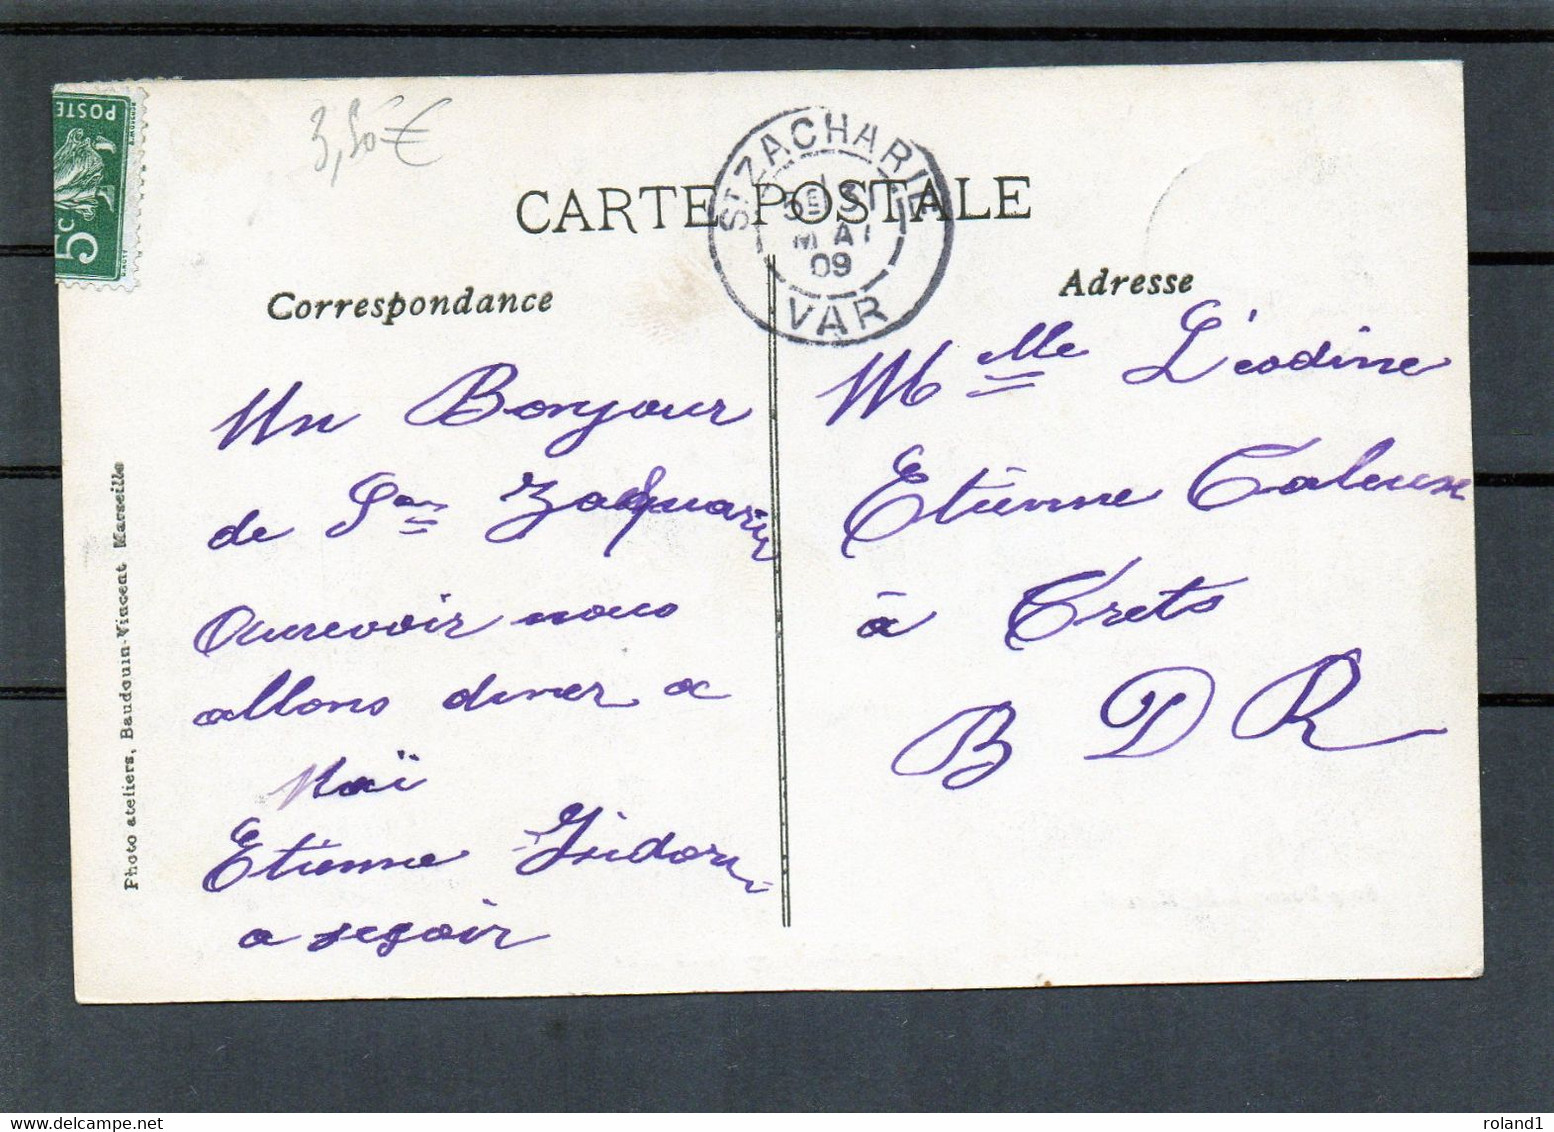 POSTE
5c
3,50 €
CARTE POSTALE
ST ZACHARIE
MAI
09
VAR
Correspondance
Adresse
Un Bonjour
de
aurevoir nous
allons diner a
Etienne Isidore
a segoir
Mlle Léodine
Etienne
à Trets
B D R
Photo ateliers, Baudouin-Vincent Marseille
roland1